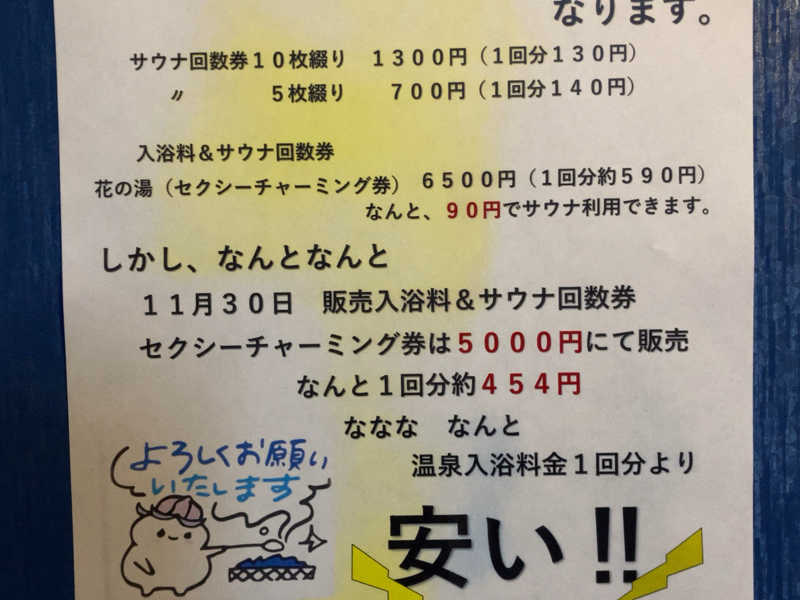 なります。
サウナ回数券１０枚綴り　１３００円（１回分１３０円）
〃　５枚綴り　７００円（１回分１４０円）
入浴料＆サウナ回数券
花の湯（セクシーチャーミング券）　６５００円（１回分約５９０円）
なんと、９０円でサウナ利用できます。
しかし、なんとなんと
１１月３０日　販売入浴料＆サウナ回数券
セクシーチャーミング券は５０００円にて販売
なんと１回分約４５４円
ななな　なんと
温泉入浴料金１回分より
安い!!
よろしくお願い
いたします